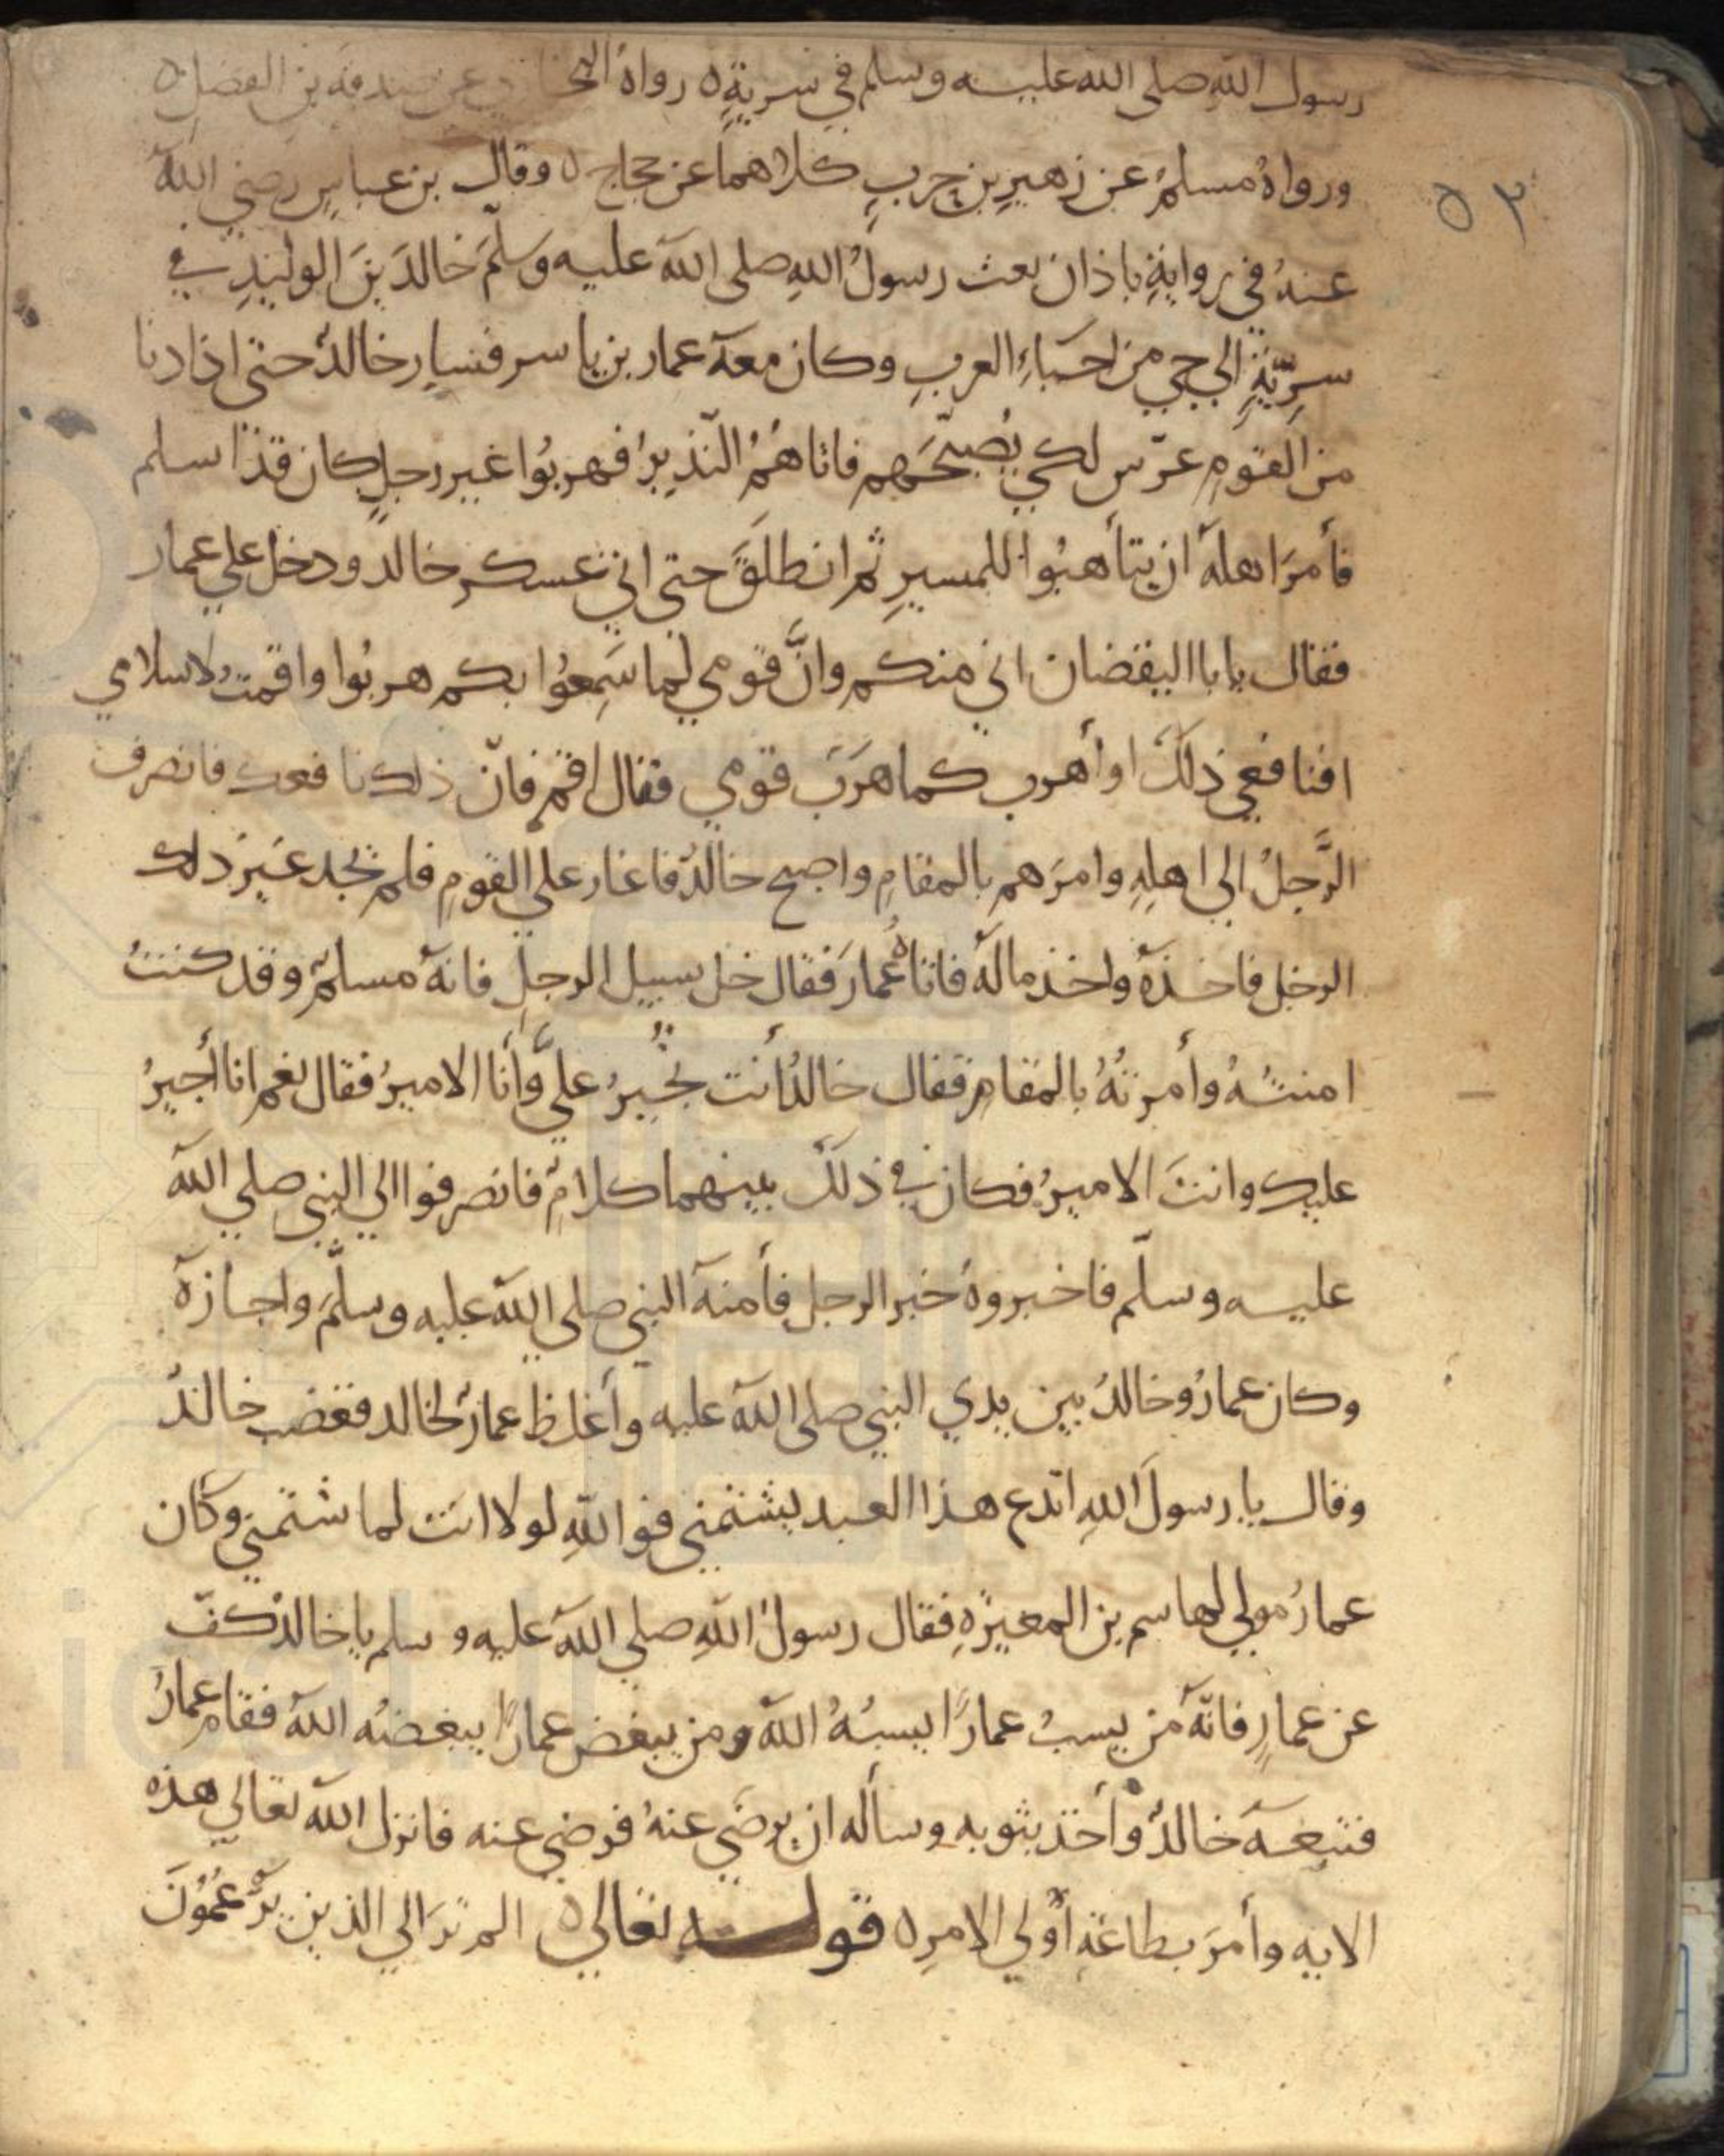 رسول الله صلى الله عليه وسلم في سرية ه رواه البخاري عن صدقة بن الفضل ه
ورواه مسلم عن زهير بن حرب كلاهما عن حجاج ه وقال بن عباس رضي الله
٥٢
عنه في رواية باذان بعث رسول الله صلى الله عليه وسلم خالد بن الوليد في
سرية الي حي من احياء العرب وكان معه عمار بن ياسر فسار خالد حتى اذا دنا
من القوم عرّس لكي يصبحهم فاتاهم النذير فهربوا غير رجل كان قد اسلم
فأمر اهله ان يتأهبوا للمسير ثم انطلق حتى اتي عسكر خالد ودخل علي عمار
فقال يابا اليقضان اني منكم وانّ قومي لما سمعوا بكم هربوا واقمت لاسلامي
افنافعي ذلك او أهرب كما هرب قومي فقال اقم فانّ ذلك نافعك فانصرف
الرّجل الي اهله وامرهم بالمقام واصبح خالد فاغار علي القوم فلم يجد غير ذلك
الرجل فاخذه واخذ ماله فاتاه عمار فقال خل سبيل الرجل فانه مسلم وقد كنت
امنته وأمرته بالمقام فقال خالد أنت تجير عليّ وأنا الامير فقال نعم انا أجير
عليك وانت الامير فكان في ذلك بينهما كلام فانصرفوا الي النبي صلي الله
عليه وسلّم فاخبروه خبر الرجل فأمنه النبي صلي الله عليه وسلّم واجازه
وكان عمار وخالد بين يدي النبي صلى الله عليه وأغلظ عمار لخالد فغضب خالد
وقال يا رسول الله اتدع هذا العبد يشتمني فوالله لولا انت لما شتمني وكان
عمار مولي لهاسم بن المغيرة فقال رسول الله صلي الله عليه وسلم يا خالد كفّ
عن عمار فانّه من يسب عمارًا يسبه الله ومن يبغض عمارًا يبغضه الله فقام عمار
فتبعه خالد وأخذ بثوبه وسأله ان يرضي عنه فرضي عنه فانزل الله تعالي هذه
الايه وأمر بطاعة أولي الامر ه قوله تعالي ه الم تر الي الذين يزعمون